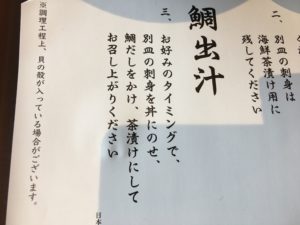 二、別皿の刺身は
海鮮茶漬け用に
残してください
鯛出汁
三、お好みのタイミングで、
別皿の刺身を丼にのせ、
鯛だしをかけ、茶漬けにして
お召し上がりください
※調理工程上、貝の殻が入っている場合がございます。
日本